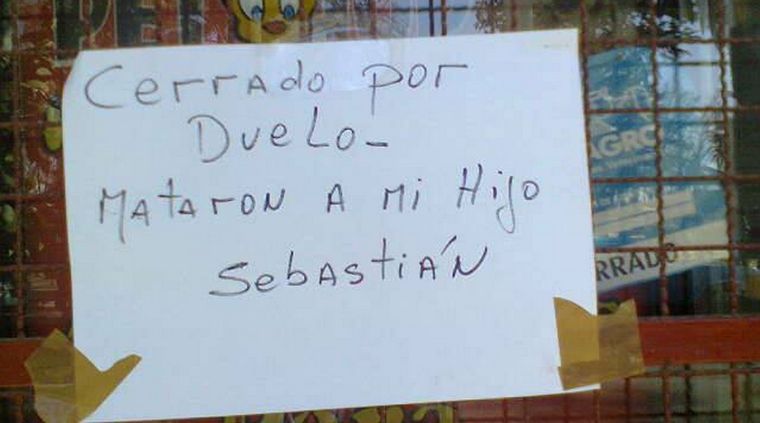 Cerrado por
Duelo-
Mataron a mi Hijo
Sebastián
AGRO
ERRADO